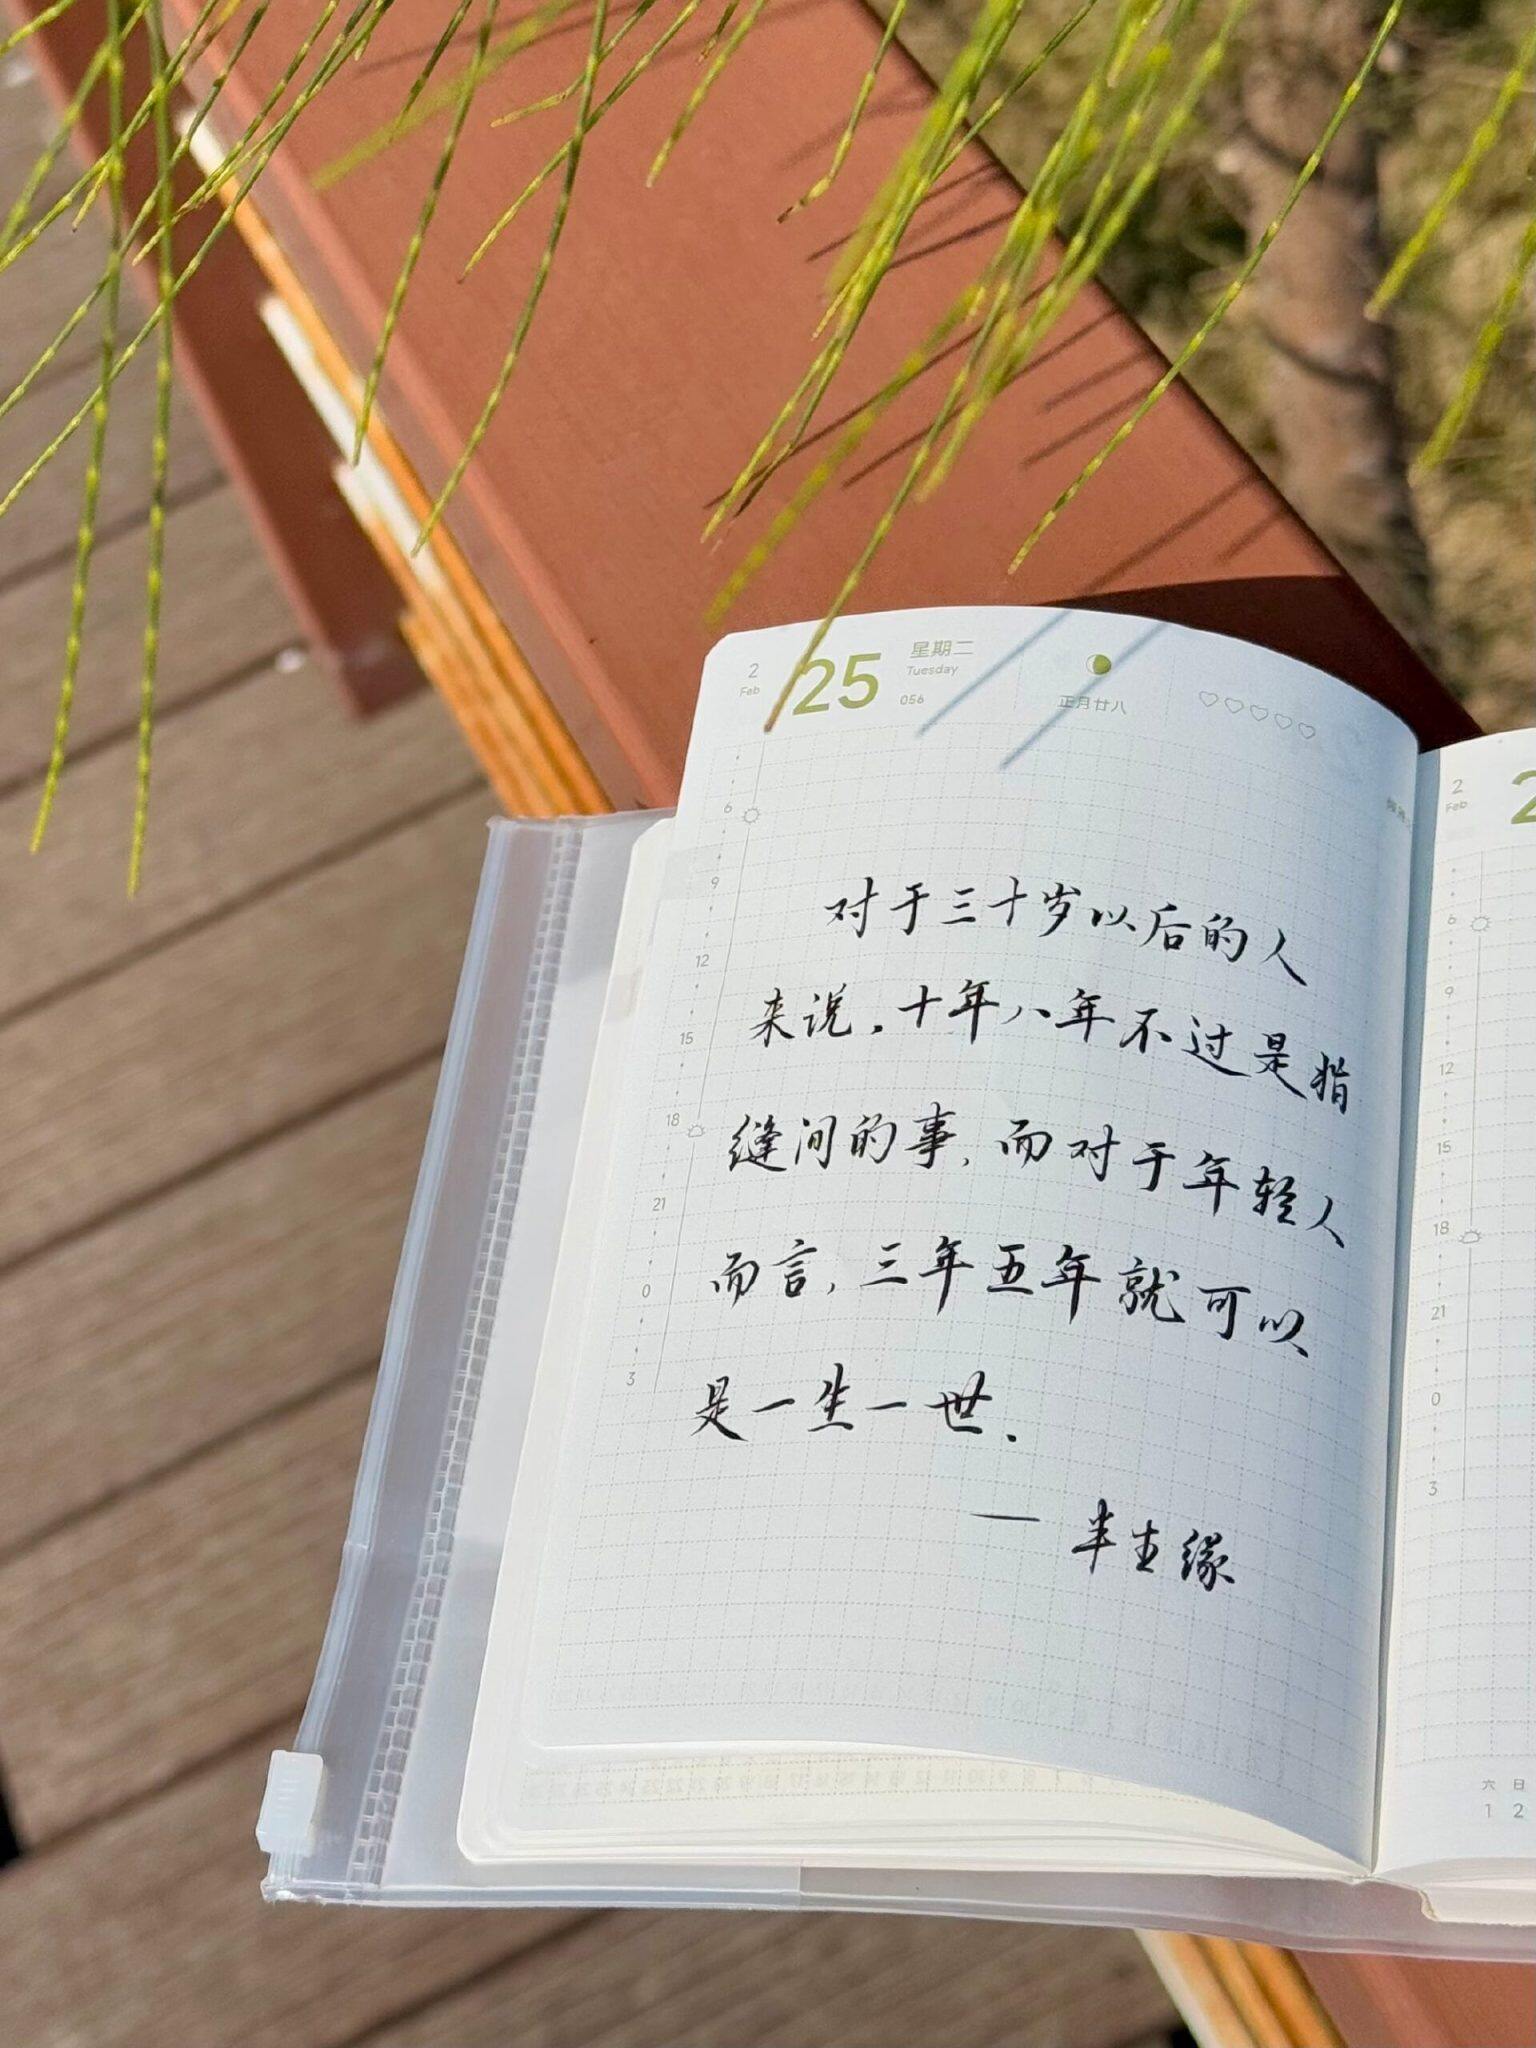 2
Feb
25
星期二
Tuesday
056
正月廿八
6
9
12
15
18
21
0
3
对于三十岁以后的人
来说，十年八年不过是指
缝间的事，而对于年轻人
而言，三年五年就可以
是一生一世．
— 半生缘
2
Feb
2
6
9
12
15
18
21
0
3
六 日
1 2